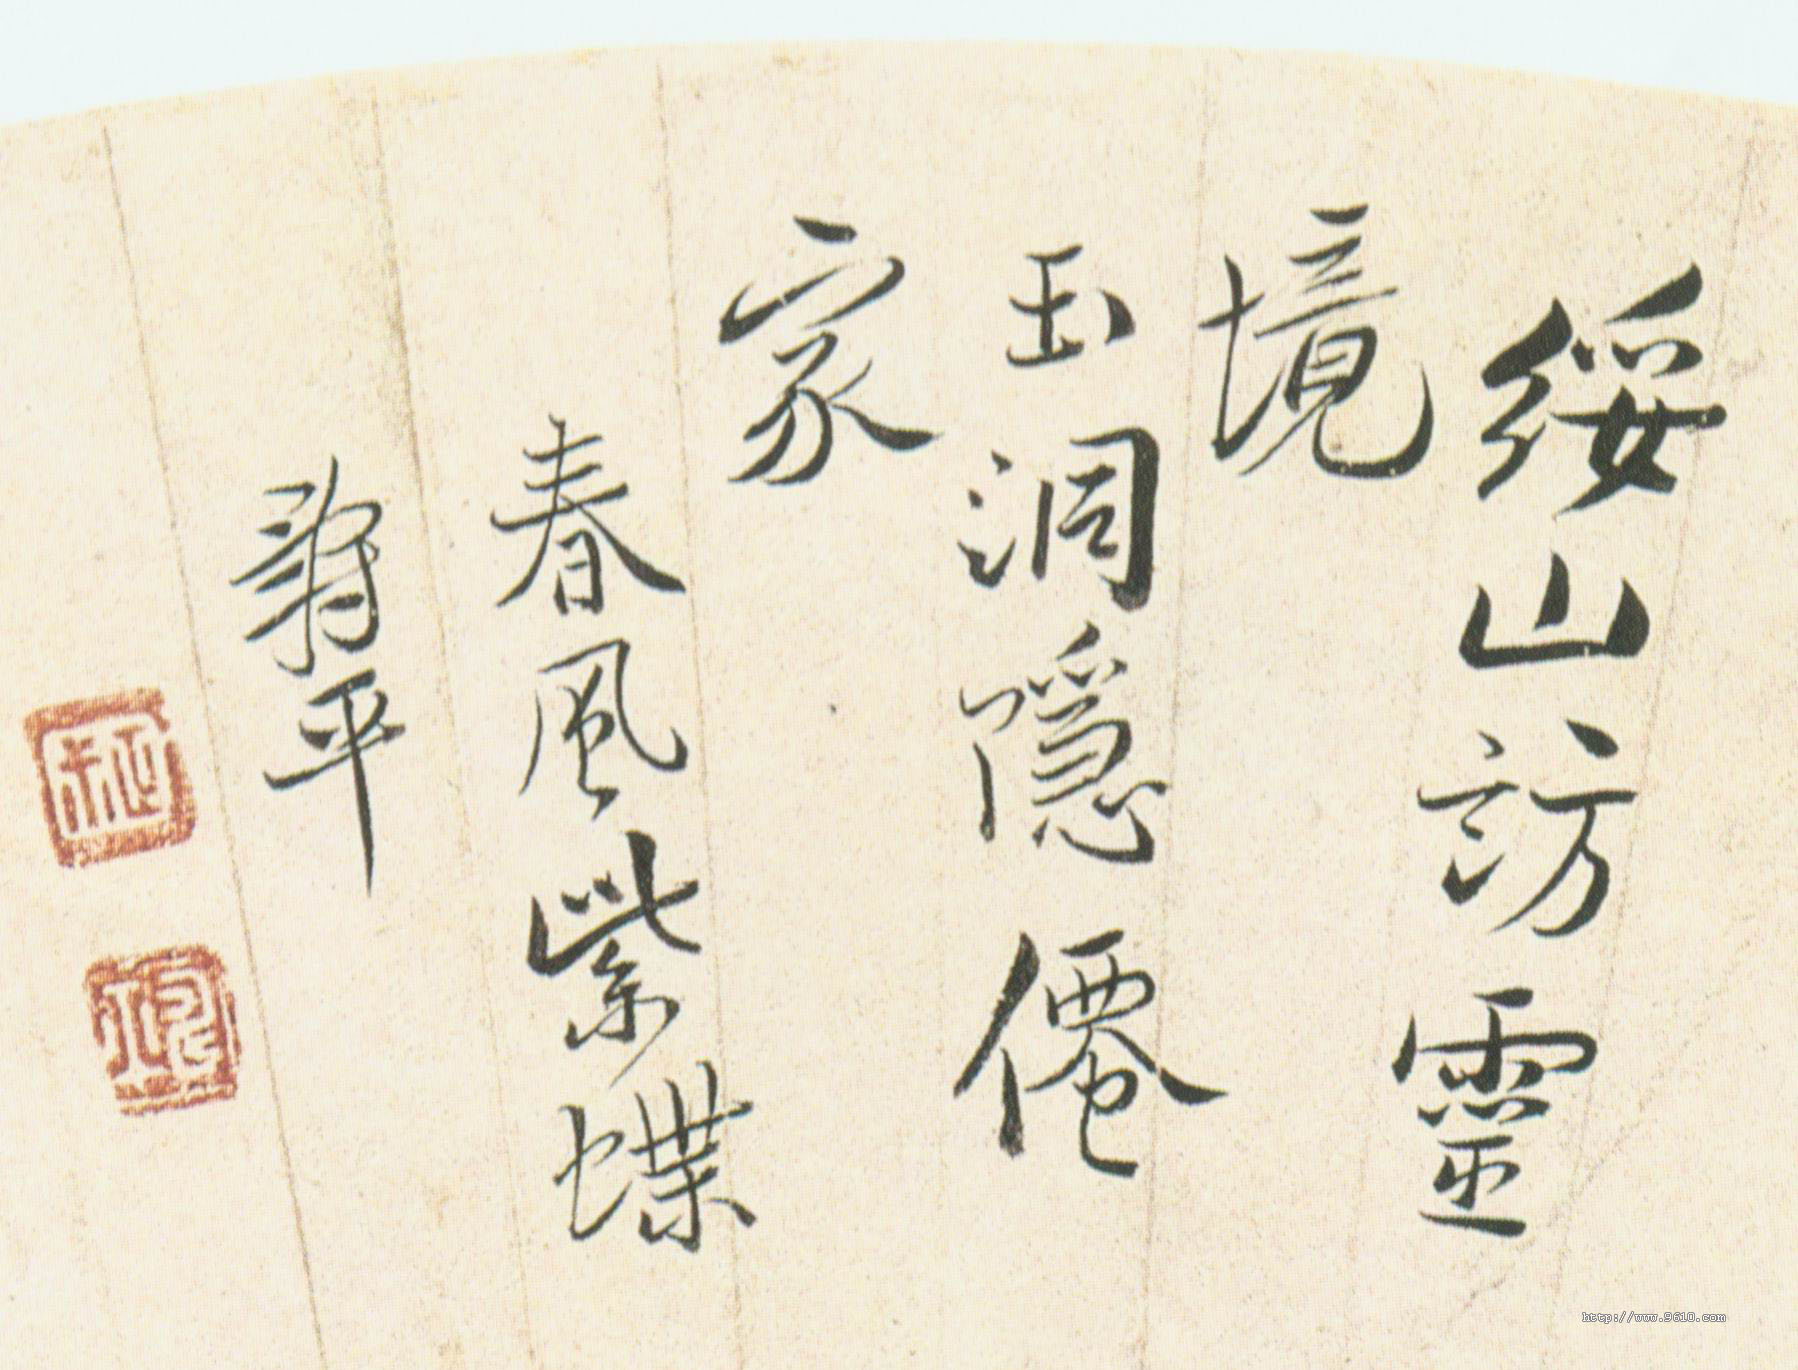 綏山訪靈
境
玉洞隱僊
家
春風紫蝶
平
http://www.9610.com